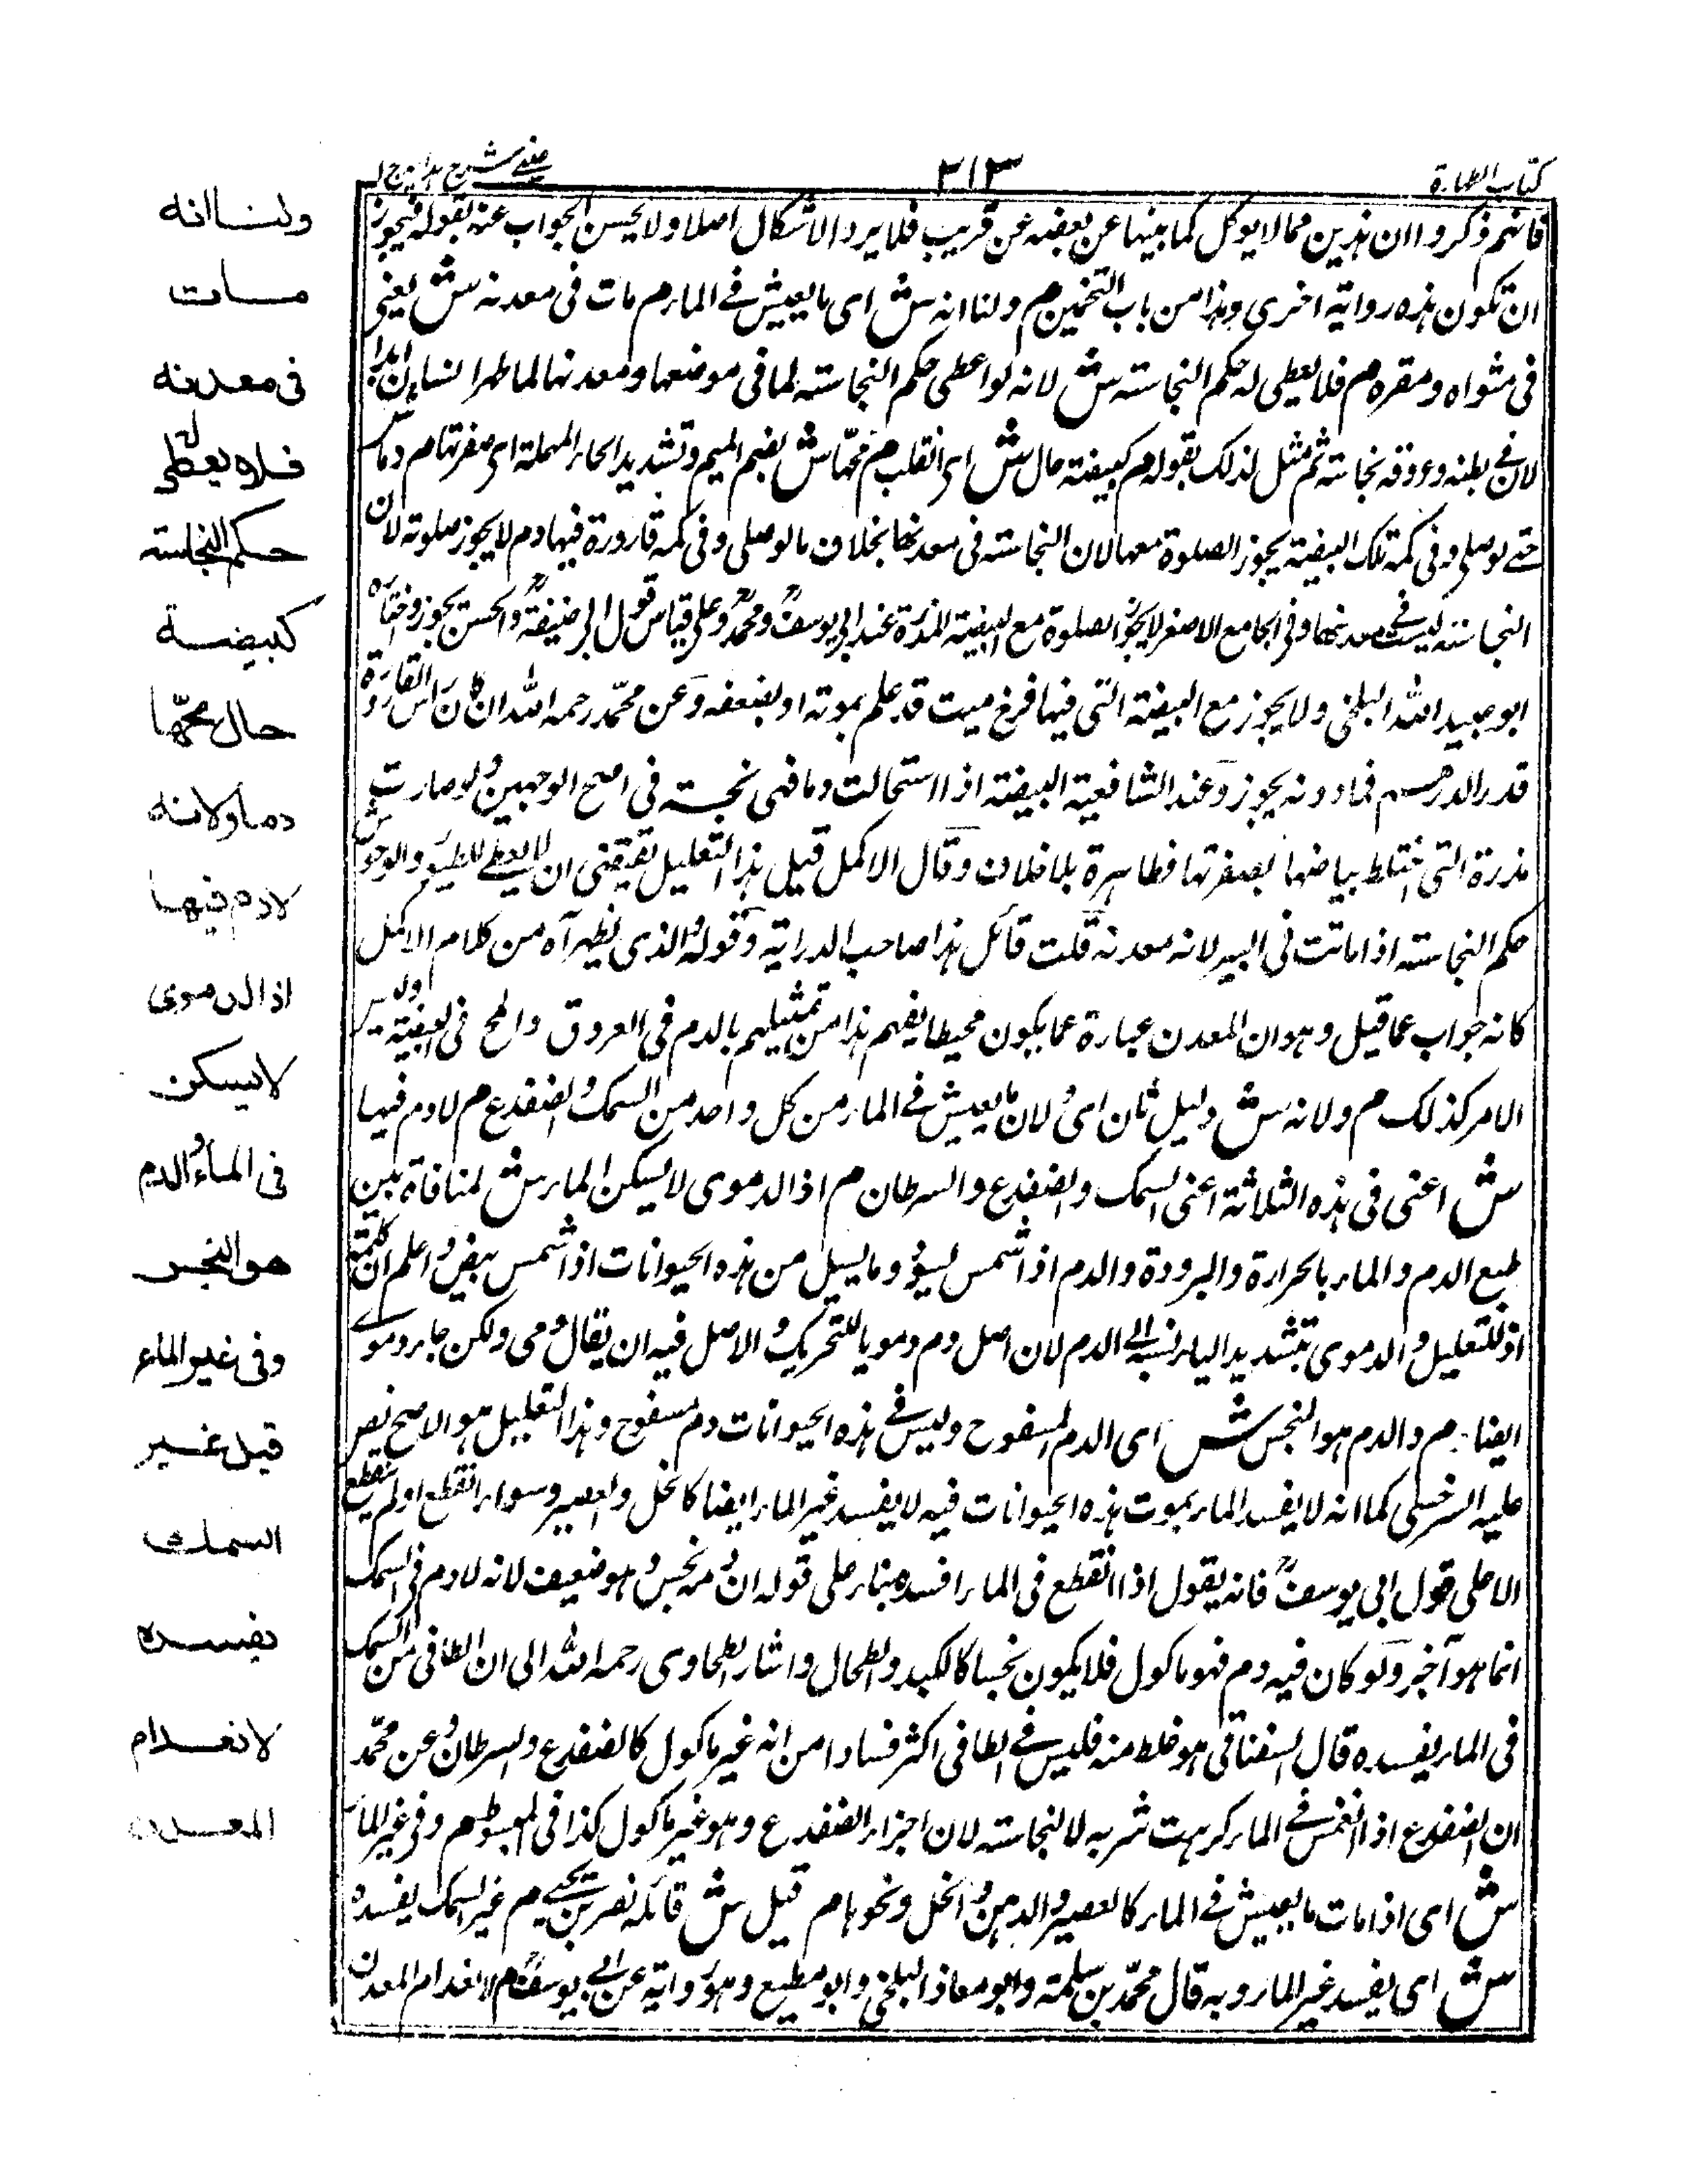 كتاب الطهارة
٢١٣
عيني شرح هدايه ج ١
فانهم ذكروا ان هذين مما لا يوكل كما بينها عن بعضه عن قريب فلا يرد الاشكال اصلا ولا يحسن الجواب عنه بقوله فيجوز
ان تكون هذه رواية اخرى وهذا من باب التخمين م ولنا انه ش اى ما يعيش في الماء م مات فى معدنه ش يعني
فى مثواه ومقره م فلا يعطى له حكم النجاسة ش لانه لو اعطى حكم النجاسة لما فى موضعها ومعدنها لما طهر انسان ابدا
لان في بطنه وعروقه نجاسة ثم مثل لذلك بقوله م كبيضة حال ش اى انقلب م محّها ش بضم الميم وتشديد الحاء المهملة اى صفرتها م دما ش
حتى لو صلى وفى كمه تلك البيضة يجوز الصلوة معها لان النجاسة فى معدنها بخلاف ما لو صلى وفى كمه قارورة فيها دم لا يجوز صلوته لان
النجاسة ليست في معدنها وفى الجامع الاصغر لا يجوز الصلوة مع البيضة المذرة عند ابى يوسف ومحمد وعلى قياس قول ابى حنيفة والحسن يجوز واختاره
ابو عبيد الله البلخى ولا يجوز مع البيضة التى فيها فرخ ميت قد علم بموته او بضعفه وعن محمّد رحمه الله ان كان راس القارورة
قدر الدرهم فما دونه يجوز وعند الشافعية البيضة اذا استحالت دما فهى نجسة فى اصح الوجهين ولو صارت
مذرة التى اختلط بياضها بصفرتها فطاهرة بلا خلاف وقال الاكمل قيل هذا التعليل يقتضى ان لا يعطى للطير والوحوش
حكم النجاسة اذا ماتت فى البير لانه معدنه قلت قائل هذا صاحب الدراية وقوله والذى يظهر آه من كلام الاكمل
كانه جواب عما قيل وهو ان المعدن عبارة عما يكون محيطا يفهم هذا من تمثيلهم بالدم فى العروق والمح فى البيضة وليس
الامر كذلك م ولانه ش دليل ثان اى ولان ما يعيش في الماء من كل واحد من السمك والضفدع م لا دم فيها
ش اعنى فى هذه الثلاثة اعنى السمك والضفدع والسرطان م اذ الدموى لا يسكن الماء ش لمنافاة بين
طبع الدم والماء بالحرارة والبرودة والدم اذا شمس يسود وما يسيل من هذه الحيوانات اذا شمس يبيض واعلم ان كلمة
اذ للتعليل والدموى بتشديد الياء نسبة الى الدم لان اصل دم دمو بالتحريك والاصل فيه ان يقال دمى ولكن جاء دموى
ايضا م والدم هو النجس ش اى الدم المسفوح وليس في هذه الحيوانات دم مسفوح وهذا التعليل هو الاصح نص
عليه السرخسى كما انه لا يفسد الماء بموت هذه الحيوانات فيه لا يفسد غير الماء ايضا كالخل والعصير وسواء انقطع او لم ينقطع
الا على قول ابى يوسف فانه يقول اذا انقطع فى الماء افسده بناء على قوله ان دمه نجس وهو ضعيف لانه لا دم فى السمك
انما هو آخر ولو كان فيه دم فهو ماكول فلا يكون نجسا كالكبد والطحال واشار الطحاوى رحمه الله الى ان الطافى من السمك
فى الماء يفسده قال السغناقى هو غلط منه فليس في الطافى اكثر فسادا من انه غير ماكول كالضفدع والسرطان وعن محمّد
ان الضفدع اذا انغمس في الماء كرهت شربه لا لنجاسته لان اجزاء الضفدع وهو غير ماكول كذا فى المبسوط م وفى غير الماء
ش اى اذا مات ما يعيش في الماء كالعصير والدهن والخل ونحوها م قيل ش قائله نصر بن يحيى م غير السمك يفسده
ش اى يفسد غير الماء وبه قال محمّد بن سلمة وابو معاذ البلخى وابو مطيع وهو رواية عن ابى يوسف م لانعدام المعدن
ولنا انه
مات
فى معدنه
فلا يعطى له
حكم النجاسة
كبيضة
حال محّها
دما ولانه
لا دم فيها
اذ الدموى
لا يسكن
فى الماء والدم
هو النجس
وفى غير الماء
قيل غير
السمك
يفسده
لانعدام
المعدن